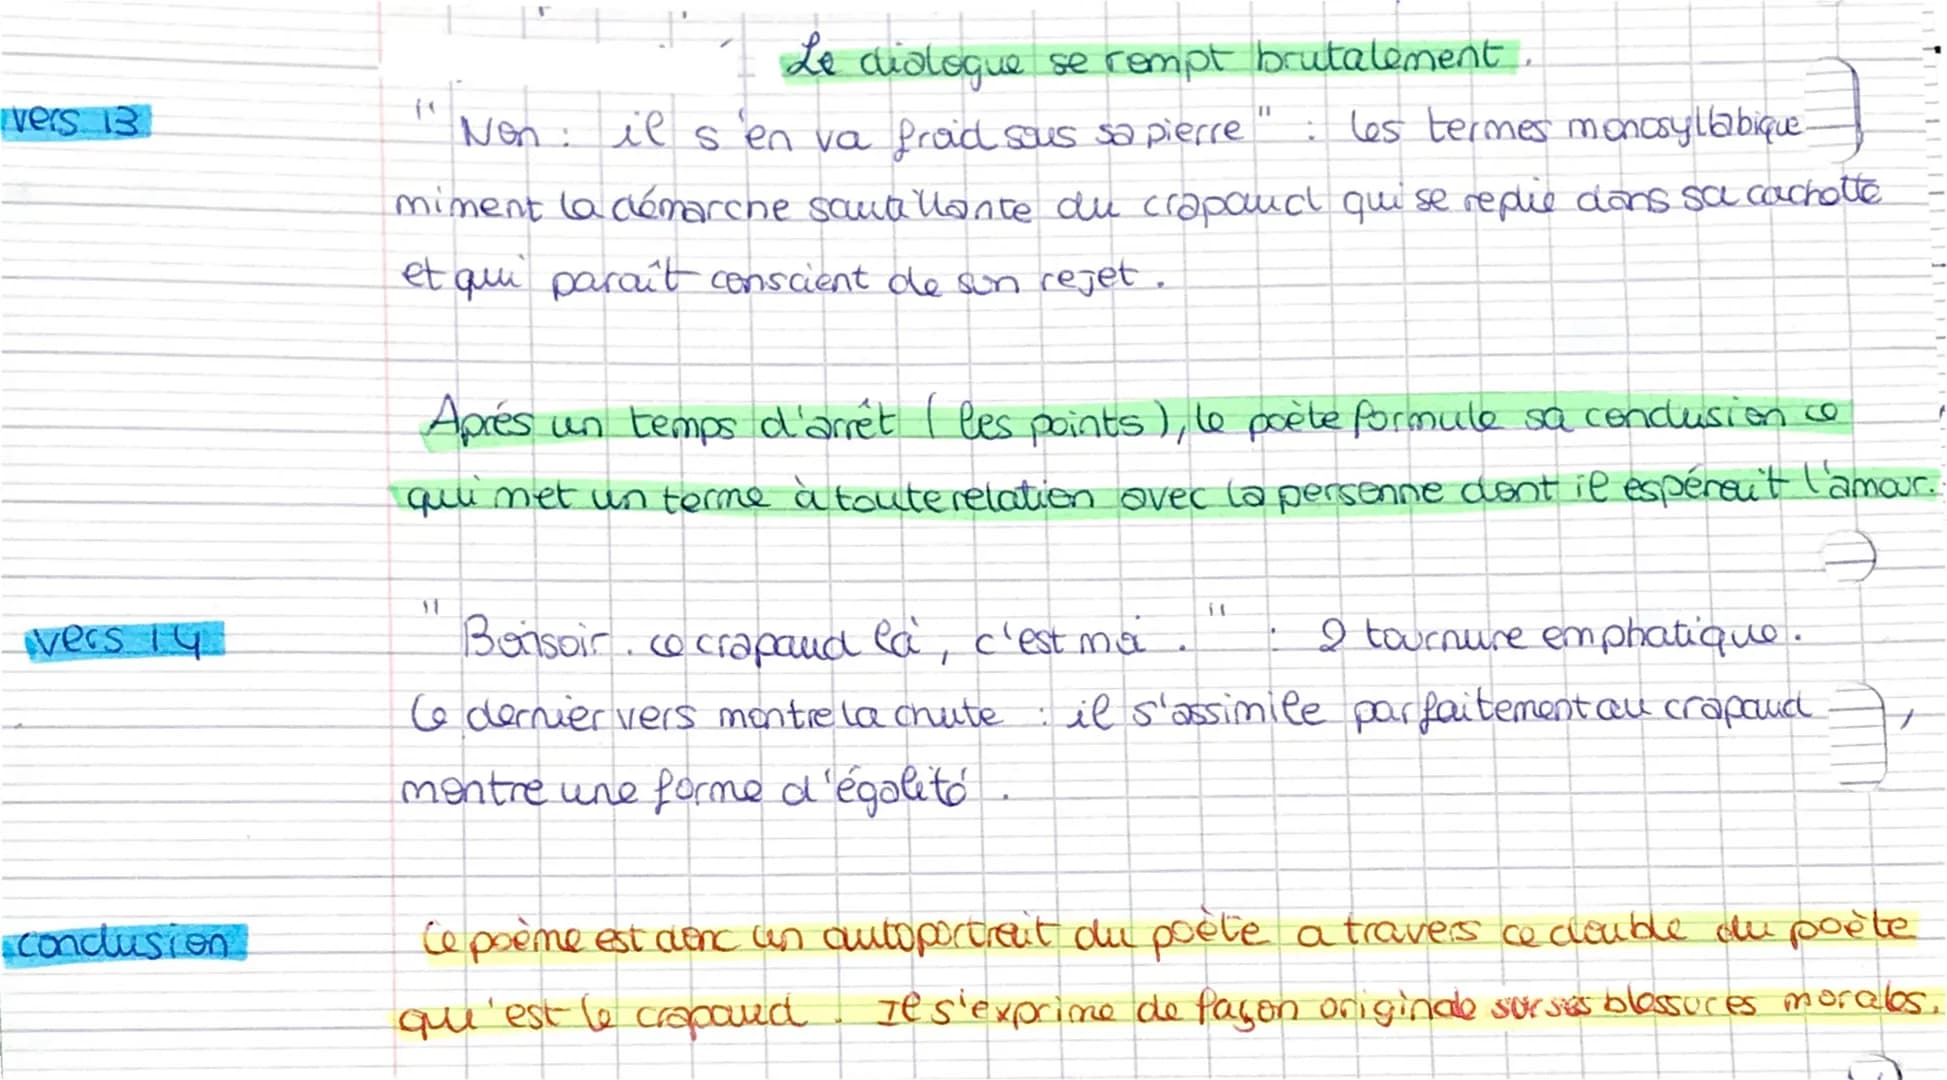 Le dialogue se rompt brutalement.
vers 13
"Non : il s'en va froid sous sa pierre" : les termes monosyllabique
miment la démarche sautillante du crapaud qui se replie dans sa cachette
et qui paraît conscient de son rejet.
Après un temps d'arrêt (les points), le poète formule sa conclusion ce
qui met un terme à toute relation avec la personne dont il espérait l'amour.
vers 14
"Bonsoir. ce crapaud là, c'est moi." : 2 tournure emphatique.
Ce dernier vers montre la chute : il s'assimile parfaitement au crapaud,
montre une forme d'égalité.
conclusion
Ce poème est donc un autoportrait du poète a travers ce double du poète
qu'est le crapaud. Il s'exprime de façon originale sur ses blessures morales.